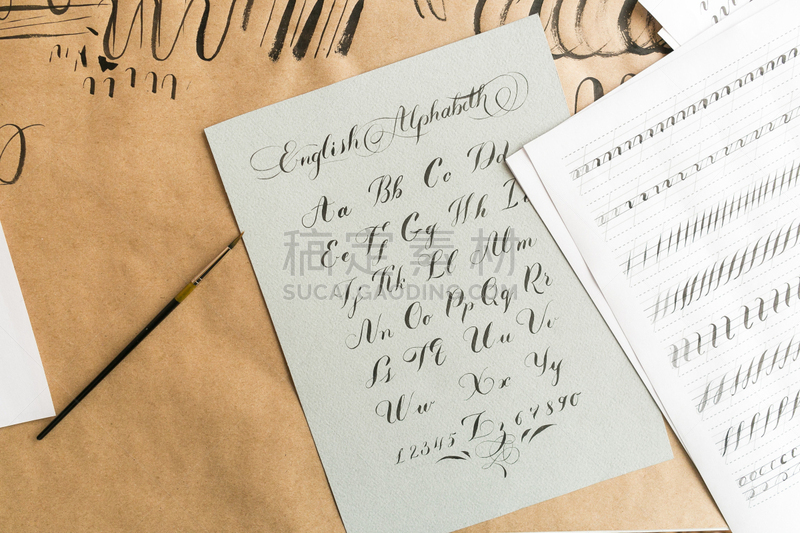 English Alphabeth
Aa Bb Cc Dd
Ee Ff Gg Hh Ii
Jj Kk Ll Mm
Nn Oo Pp Qq Rr
Ss Tt Uu Vv
Ww Xx Yy
12345 Zz 67890
稿定素材
SUCAI.GAODING.COM